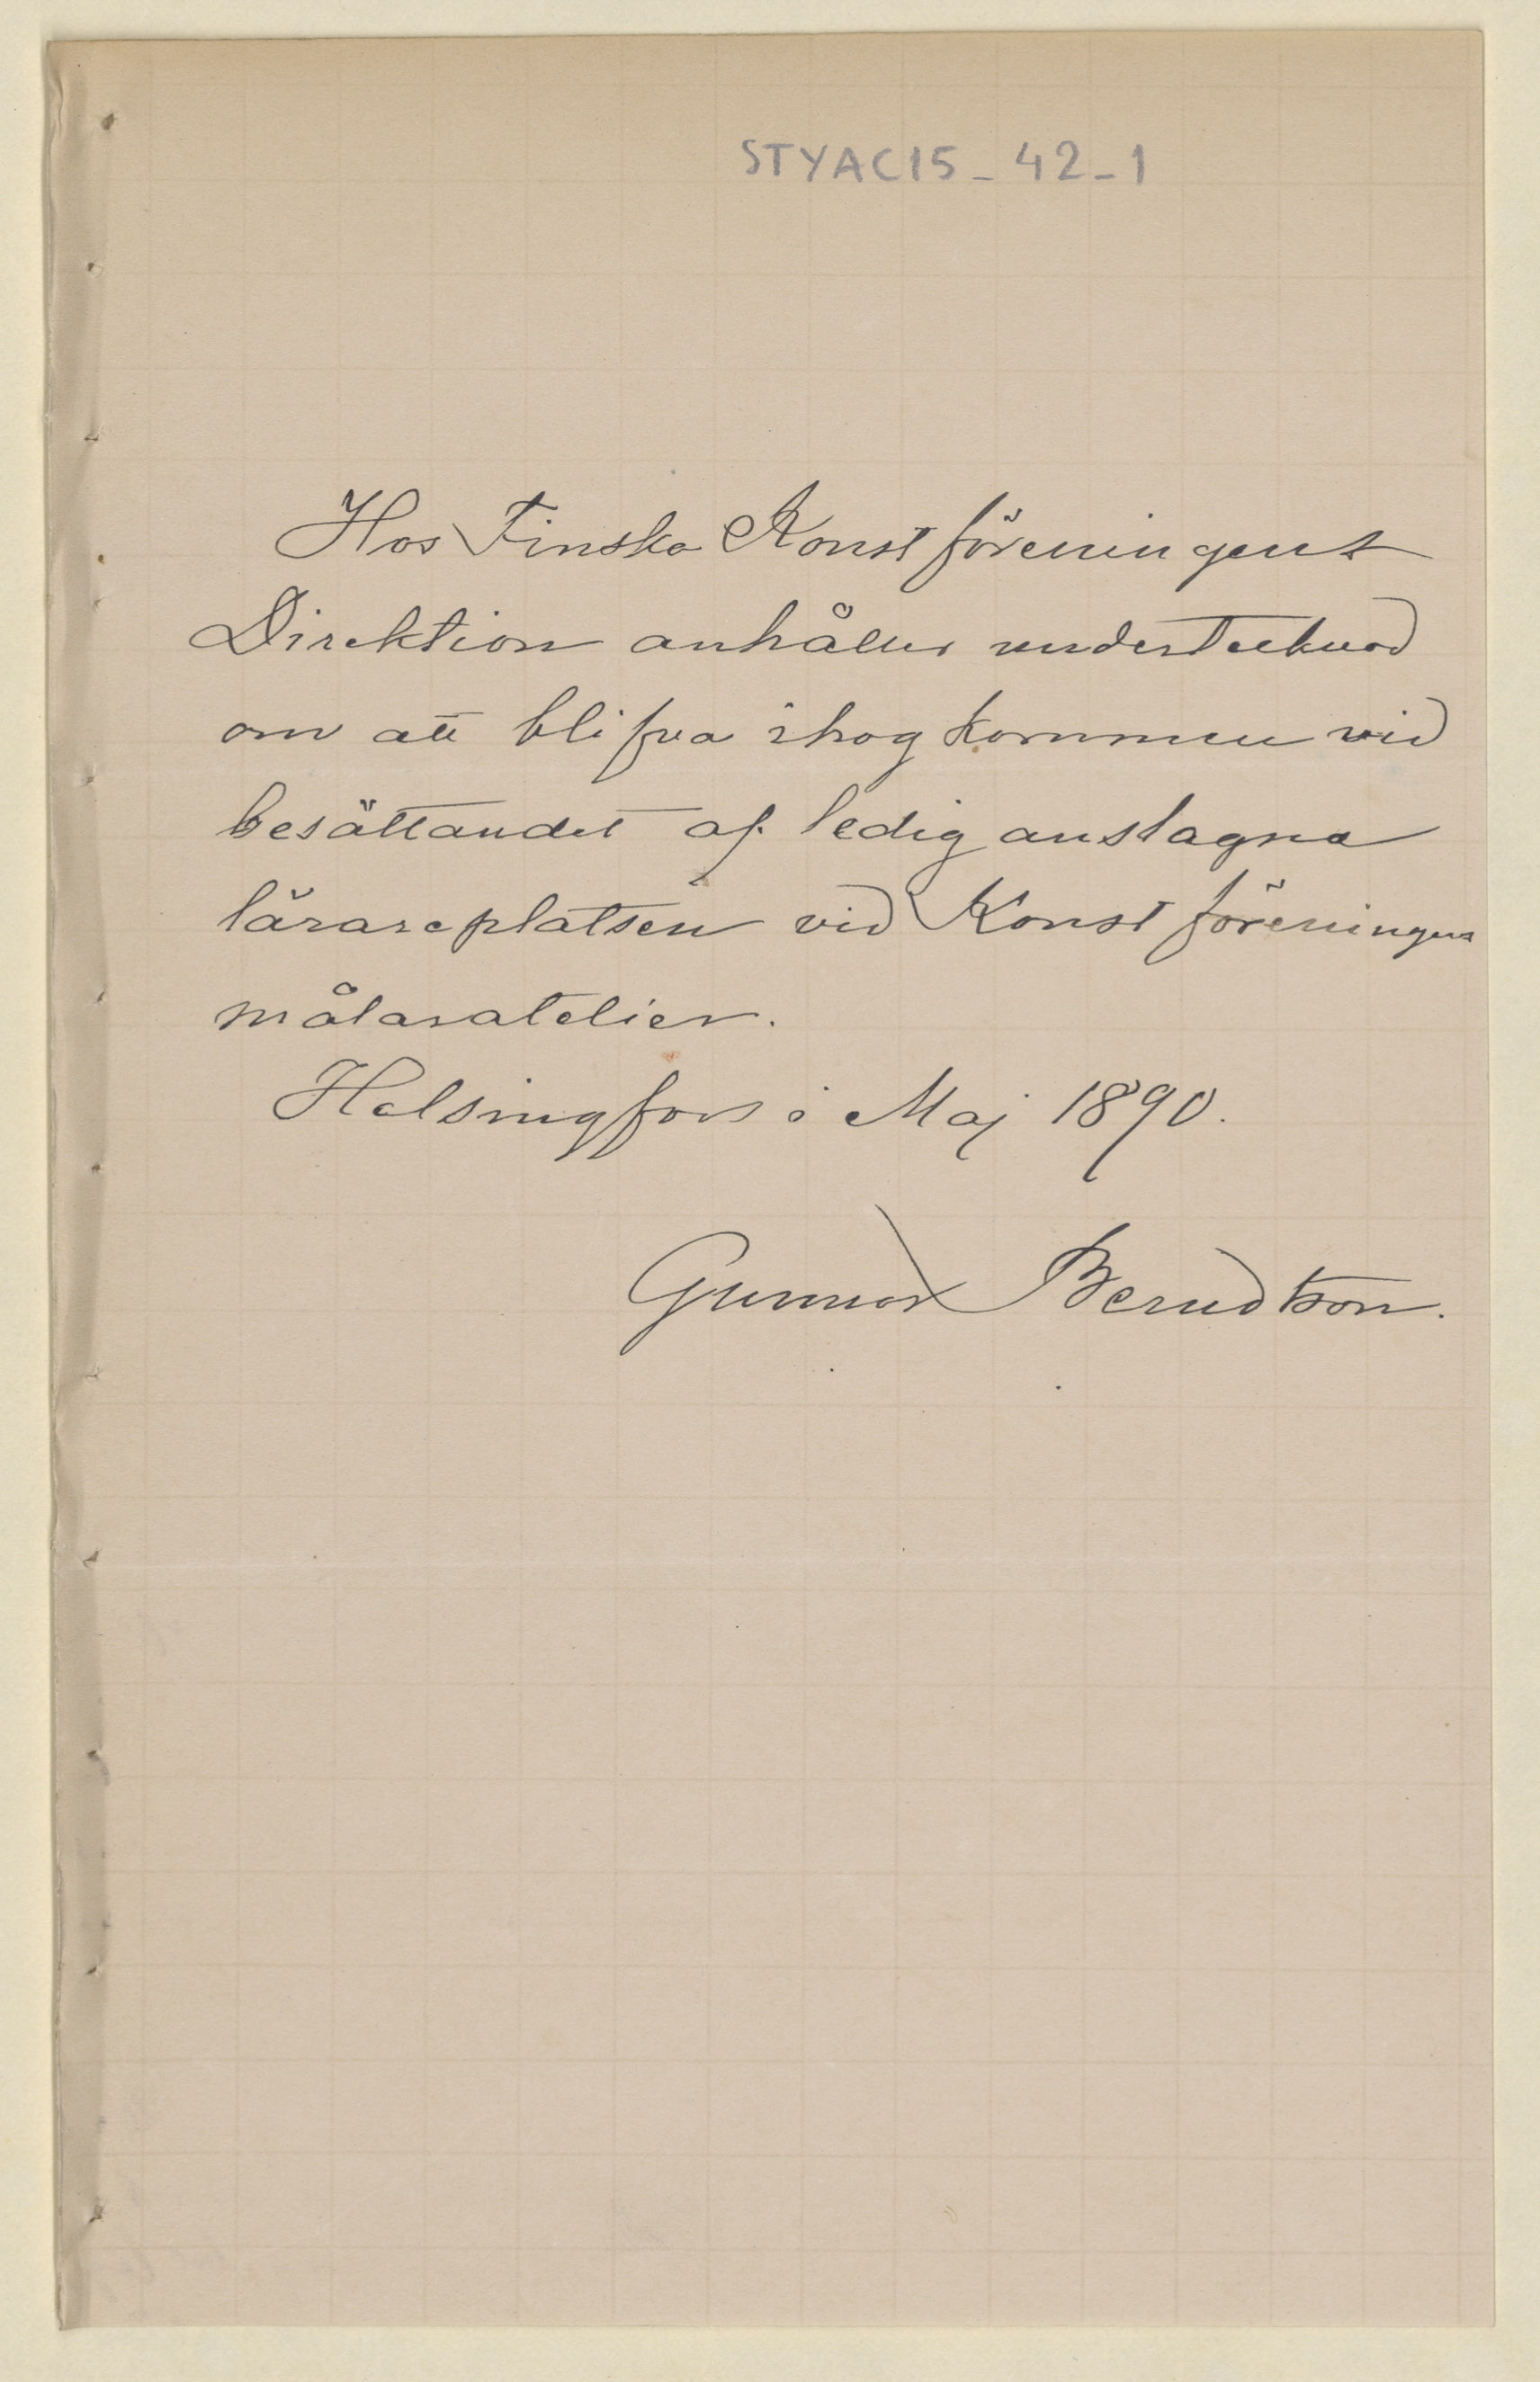 STYAC15_42_1
Hos Finska Konstföreningens
Direktion anhåller undertecknad
om att blifva ihågkommen vid
besättandet af ledig anslagna
lärareplatsen vid Konstföreningens
målaratelier.
Helsingfors i Maj 1890.
Gunnar Berndtson.